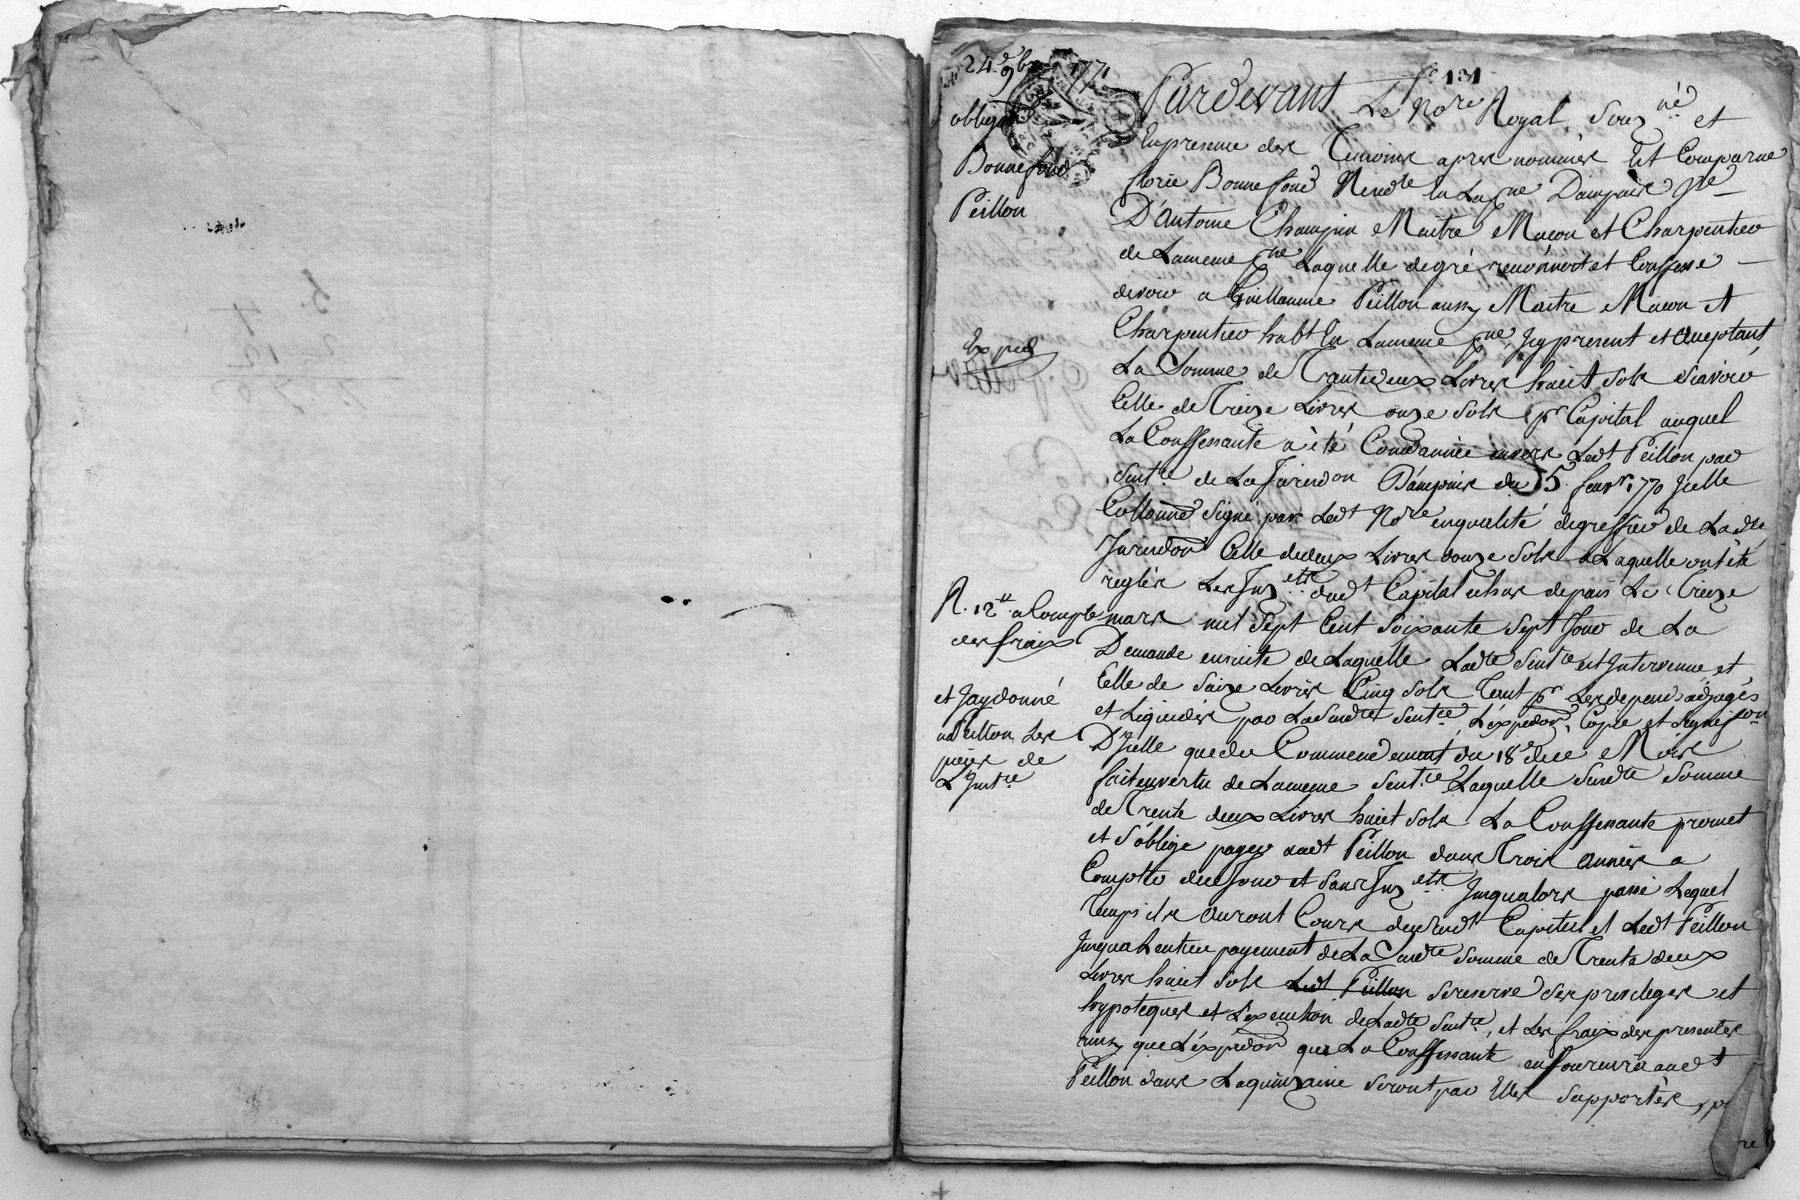 24e 9bre 1771
obligaon
Bonnefond
Peillon
Exped
R. 12tt a Compte
des fraix
et Jaydonné
a Peillon Les
pieces de
L'Inst.ce
fo 131
Pardevant Le Nore Royal Sous.né et
En presence des Temoins apres nommés Est Comparue
florie Bonnefond Resid.te en La p.ne Dampuis fe
D'Antoine Champin Maitre Maçon et Charpentier
de Lameme p.ne Laquelle de gré reconnoit et Confesse
devoir a Guillaume Peillon aussy Maitre Maçon et
Charpentier habt En Lameme p.ne Icy present et acceptant
La Somme de Trantedeux Livres huit Sols Sçavoir
Celle de Treize Livres onze Sols pr Capital auquel
La Confessante a été Condannée envers Ledt Peillon par
Sentce de La Juridon Dampuis du 15 fevr 1770 Icelle
Collonné Signé par Ledt Nore en qualité de greffier de Ladte
Juridon Celle de deux Livres douze Sols a Laquelle ont été
reglés Les Inetts dudt Capital echus depuis Le Treize
mars mil Sept Cent Soixante Sept Jour de La
Demande ensuite de Laquelle Ladte Sentce est Intervenue et
Celle de Saize Livres Cinq Sols Tant pr Les depends adjugés
et Liquidés par La Susdte Sentce, L'expedon, Copie et Signifon
D'Icelle que du Commendement du 18e du Mois
fait en vertu de Lameme Sentce Laquelle Susdte Somme
de Trente deux Livres huit Sols La Confessante promet
et S'oblige payer audt Peillon dans Trois années a
Compter de ce Jour et Sans Inetts Jusqualors passé Lequel
Temps ils auront Cours dud Capital et Ledt Peillon
Jusqua Lentier payement de La Susdte Somme de Trente deux
Livres huit Sols Ledt Peillon Se reserve Ses privileges et
hypoteques et L'execution de Ladte Sentce, et Les fraix des presentes
ainsy que L'expedon que La Confessante en fournira audt
Peillon dans La quinzaine Seront par Elles Supportés, p
re